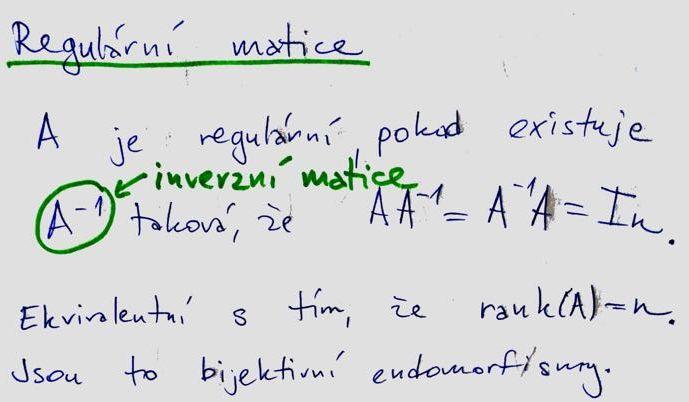 Regulární matice
A je regulární, pokud existuje
inverzní matice
A⁻¹ taková, že AA⁻¹ = A⁻¹A = In.
Ekvivalentní s tím, že rank(A)=n.
Jsou to bijektivní endomorfismy.